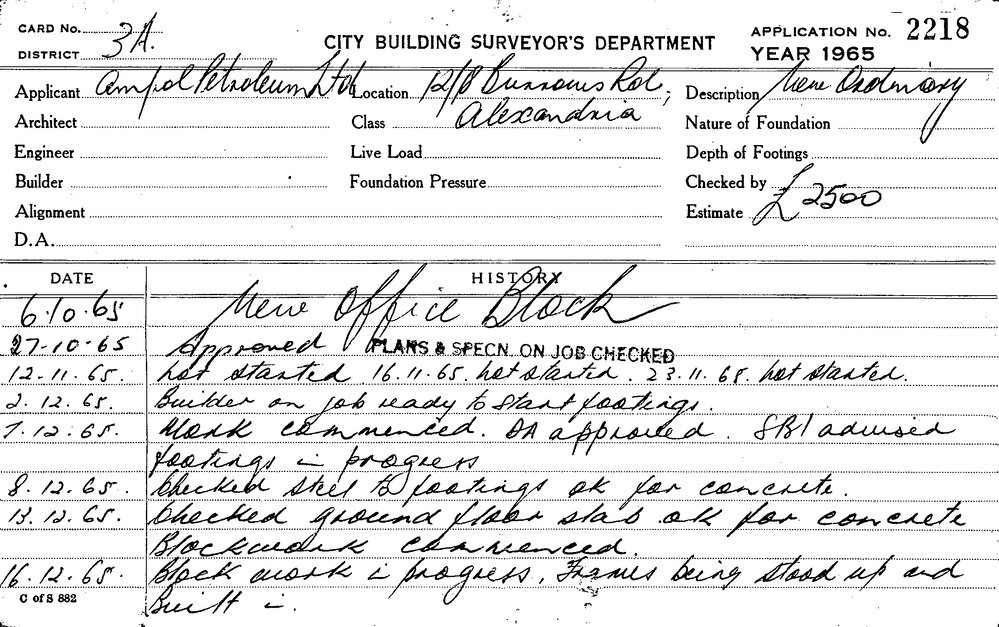 CARD No. APPLICATION No. 2218
DISTRICT 3A. CITY BUILDING SURVEYOR'S DEPARTMENT YEAR 1965
Applicant Ampol Petroleum Ltd Location 12/18 Burrows Rd, Description New Ordinary
Architect Class Alexandria Nature of Foundation
Engineer Live Load Depth of Footings
Builder Foundation Pressure Checked by
Alignment Estimate £2500
D.A.
DATE HISTORY
6.10.65 New Office Block
27-10-65 Approved PLANS & SPECN. ON JOB CHECKED
12.11.65. Not started 16.11.65. not started. 23.11.65. not started.
2.12.65. Builder on job ready to start footings.
7.12.65. Work commenced. DA approved. SBI advised
footings in progress
8.12.65. Checked steel to footings ok for concrete.
13.12.65. Checked ground floor slab ok for concrete
Blockwork commenced.
16.12.65. Block work in progress, Frames being stood up and
C of S 882
Built in.